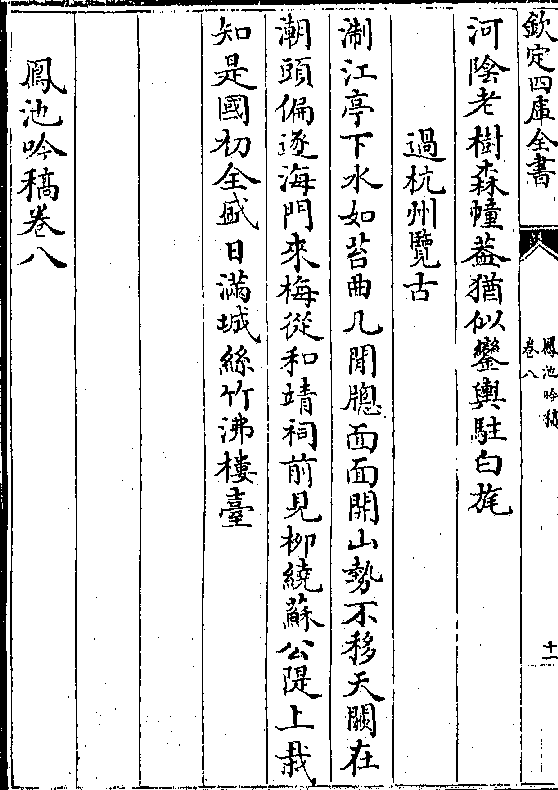 欽定四庫全書
鳳池吟稿
卷八
十一
河陰老樹森幢葢猶似鑾輿駐白旄
過杭州覽古
淛江亭下水如苔曲几閒牕面面開山勢不移天闕在
潮頭偏逐海門來梅從和靖祠前見栁繞蘇公隄上栽
知是國初全盛日滿城絲竹沸樓臺
鳳池吟稿卷八